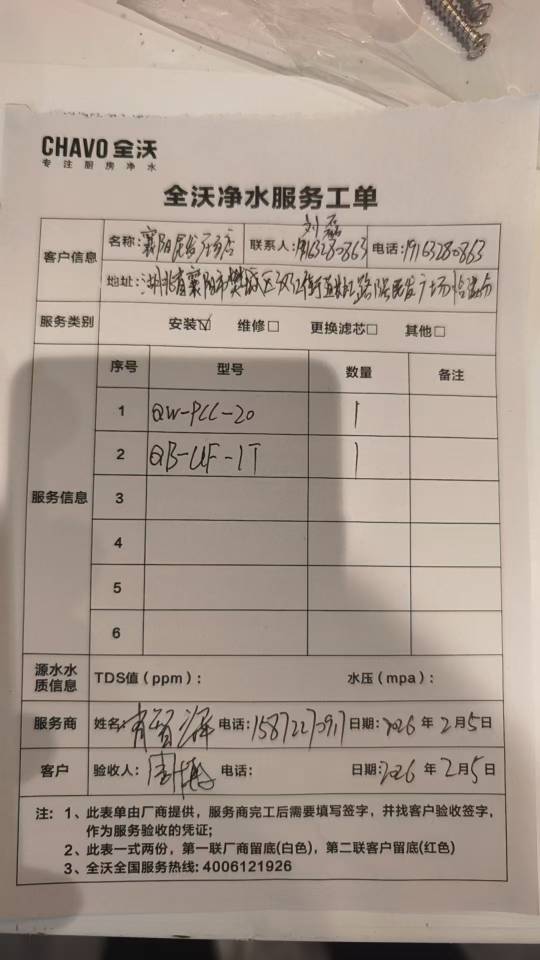 CHAVO 全沃
专注厨房净水
全沃净水服务工单
客户信息
名称: 襄阳民发店 联系人: 刘磊 19163280863 电话: 19163280863
地址: 湖北省襄阳市樊城区 街 路 民发广场
服务类别 安装☑ 维修□ 更换滤芯□ 其他□
服务信息
序号 型号 数量 备注
1 QW-PCC-20 1
2 QB-UF-1T 1
3
4
5
6
源水水质信息 TDS值（ppm）: 水压（mpa）:
服务商 姓名: 肖 泽 电话: 15872270917 日期: 2026 年 2月5日
客户 验收人: 周 电话: 日期: 2026 年 2月5日
注: 1、此表单由厂商提供，服务商完工后需要填写签字，并找客户验收签字，
作为服务验收的凭证;
2、此表一式两份，第一联厂商留底(白色)，第二联客户留底(红色)
3、全沃全国服务热线: 4006121926